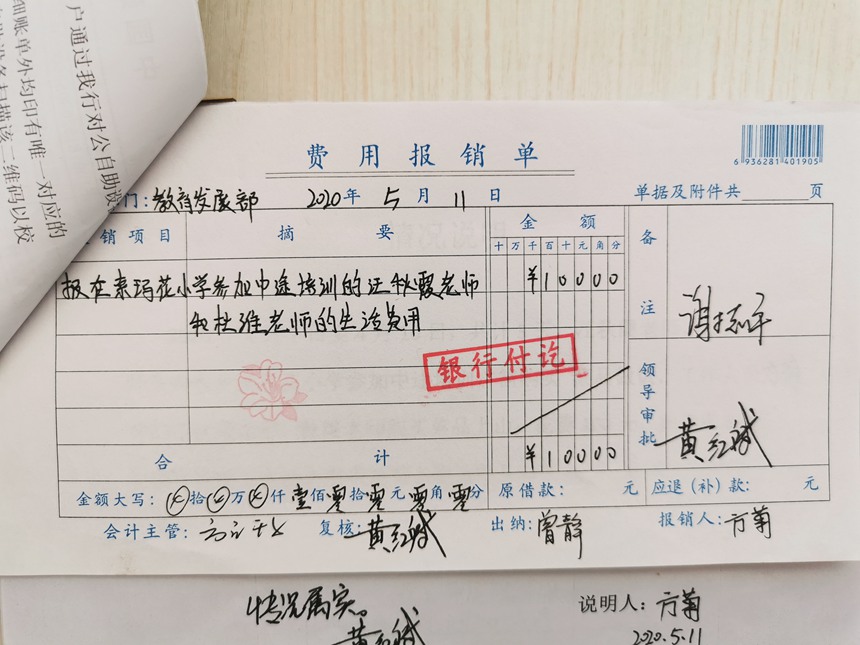 户通过我行对公自助设
细账单外均印有唯一对应的
扫描该二维码以校
费用报销单
6 936281 401905
门：教育发展部 2020年 5月 11日 单据及附件共 页
销项目 摘要 金额 备注
十 万 千 百 十 元 角 分
报在素玛花小学参加中途培训的汪秋霞老师 ¥10000
和杜维老师的生活费用
谢志平
银行付讫
领导审批 黄红斌
合计 ¥10000
金额大写：拾 万 仟 壹佰 零拾 零元 零角 零分 原借款： 元 应退（补）款： 元
会计主管： 复核：黄红斌 出纳：曾静 报销人：方菊
情况属实。 说明人：方菊
黄红斌 2020.5.11